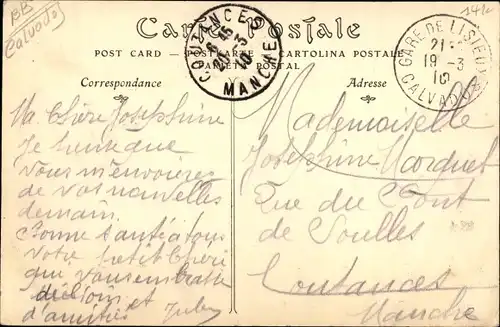 BB
Calvados
Carte Postale
POST CARD — POSTKARTE — CARTOLINA POSTALE
TARJETA POSTAL
COUTANCES
MANCHE
GARE DE LISIEUX
21
19 - 3
10
CALVADOS
Correspondance
Adresse
Ma Chère Josephine
Je
que
vous m'envoirez
de vos nouvelles
demain.
Bonne santé a tous
votre petit Chéri
qui vous embrasse
et
d'amitiés Jules
Mademoiselle
Josephine Marquet
Rue du Pont
de Soulles
Coutances
Manche